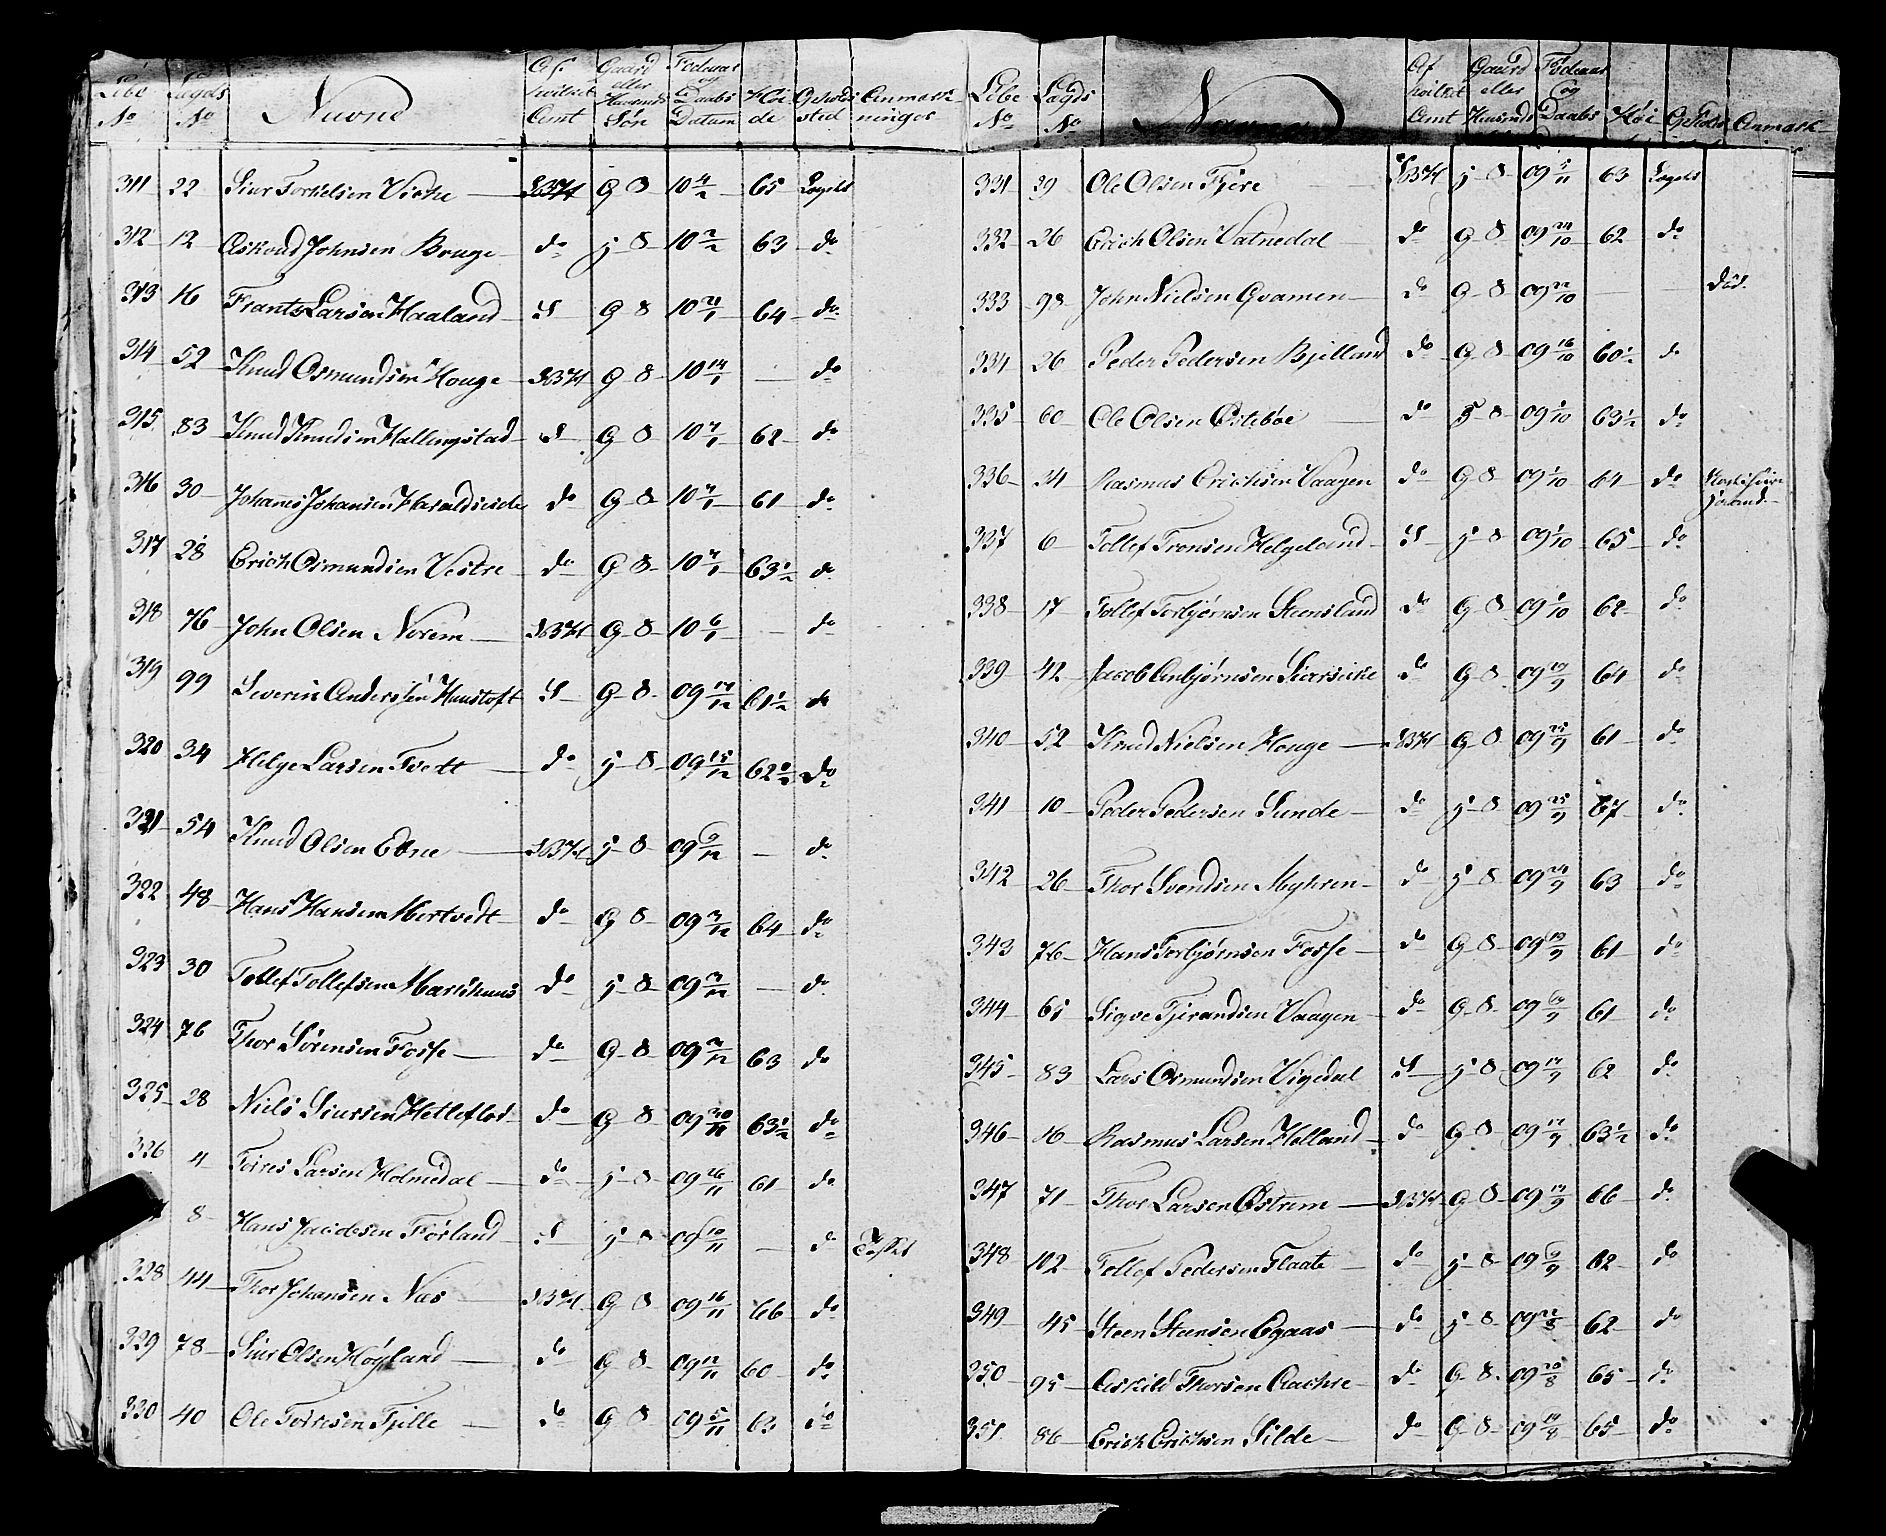 Løbe No Lægds No Navne Af hvilket Amt Gaard eller Huusmds Søn Fødeaar og Daabs Datum Høide Opholdssted Anmærkninger
311 22 Siur Torkelsen Vicke G S 10 4/2 65 Lægdet
312 12 Askoud Johnsen Bouge do j S 10 2/2 63 do
313 16 Frants Larsen Haaland S G S 10 21/1 64 do
314 52 Knud Osmundsen Houge G S 10 14/1 — do
315 83 Knud Knudsen Hallingstad S G S 10 7/1 62 do
316 30 Johanes Johansen Haraldseide do G S 10 7/1 61 do
317 28 Erich Osmundsen Vestre do G S 10 7/1 63 1/2 do
318 76 John Olsen Norem G S 10 6/1 — do
319 99 Severin Andersen Hunstoft S G S 09 17/12 61 1/2 do
320 34 Helge Larsen Tvedt do j S 09 15/12 62 1/2 do
321 54 Knud Olsen Edne j S 09 9/12 — do
322 48 Hans Hansen Mortvedt do G S 09 3/12 64 do
323 30 Tollef Tollefsen Markhuus do j S 09 3/12 — do
324 76 Thor Sørensen Fosse do G S 09 3/12 63 do
325 28 Niels Siursen Hetleflot do G S 09 30/11 63 1/2 do
326 4 Torres Larsen Holmedal do j S 09 26/11 61 do
8 Hans Jacobsen Førland S j S 09 10/11 — do
328 44 Thor Johansen Næs G S 09 16/11 66 do
329 78 Siur Olsen Høyland do G S 09 12/11 60 do
330 40 Ole Torresen Tjille do G S 09 5/11 63 do
Løbe No Lægds No Navne Af hvilket Amt Gaard eller Huusmds Fødeaar og Daabs Høi Opholds Anmærk
331 39 Ole Olsen Fjere j S 09 5/11 63 Lægdet
332 26 Erich Olsen Vatnedal do G S 09 24/10 62 do
333 98 John Nielsen Qvamen do G S 09 22/10 — Død.
334 26 Peder Pedersen Bjelland do G S 09 16/10 60 1/2 do
335 60 Ole Olsen Østebøe do j S 09 1/10 63 1/2 do
336 34 Rasmus Erichsen Vaagen do G S 09 1/10 64 do
337 6 Tollef Tronsen Helgeland S j S 09 1/10 65 do
338 17 Tollef Torbjørnsen Steensland do G S 09 1/10 62 do
339 42 Jacob Anbjørnsen do G S 09 29/9 64 do
340 52 Knud Nielsen Houge G S 09 25/9 61 do
341 10 Peder Pedersen Sunde do j S 09 25/9 67 do
342 26 Thor Svendsen Myhren do j S 09 24/9 63 do
343 76 Hans Torbjørnsen Fosse do G S 09 19/9 61 do
344 65 Sigve Tjerandsen Vaagen do G S 09 19/9 61 do
345 83 Lars Osmundsen Vigedal S j S 09 17/9 62 do
346 16 Rasmus Larsen Helland do G S 09 17/9 63 1/2 do
347 71 Thor Larsen Østrem G S 09 17/9 66 do
348 102 Tollef Pedersen Flaate do j S 09 9/9 62 do
349 45 Steen Steensen Egaas do j S 09 22/8 62 do
350 95 Askild Thorsen Aachre do G S 09 20/8 65 do
351 86 Erich Erichsen Silde do G S 09 19/8 65 do